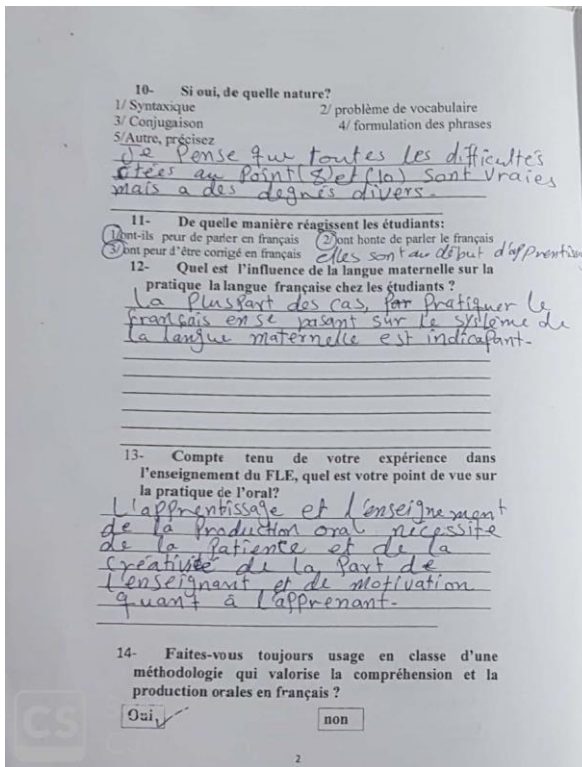 10- Si oui, de quelle nature?
1/ Syntaxique 2/ problème de vocabulaire
3/ Conjugaison 4/ formulation des phrases
5/Autre, précisez
Je Pense que toutes les difficultés
citées au Point (8) et (10) sont vraies
mais a des degrés divers.
11- De quelle manière réagissent les étudiants:
1/ont-ils peur de parler en français 2/ont honte de parler le français
3/ont peur d'être corrigé en français elles sont au début d'apprentissa
12- Quel est l'influence de la langue maternelle sur la
pratique la langue française chez les étudiants ?
la pluspart des cas, Par Pratiquer le
français en se basant sur le système de
la langue maternelle est indicapant-
13- Compte tenu de votre expérience dans
l'enseignement du FLE, quel est votre point de vue sur
la pratique de l'oral?
L'apprentissage et l'enseignement
de la Production oral nécessite
de la Patience et de la
créativité de la Part de
l'enseignant et de motivation
quant à l'apprenant-
14- Faites-vous toujours usage en classe d'une
méthodologie qui valorise la compréhension et la
production orales en français ?
Oui non
CS
2